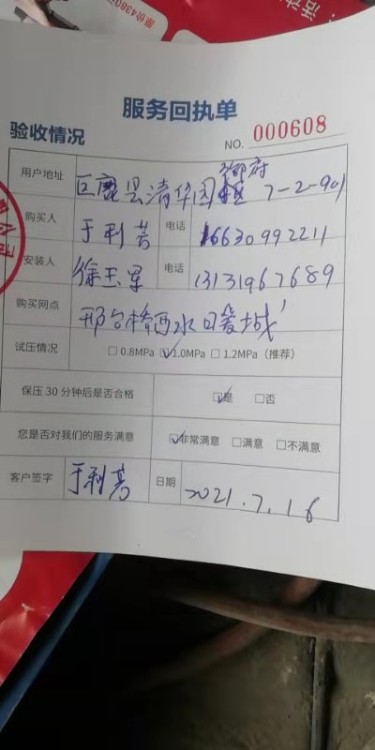 服务回执单
验收情况
NO. 000608
用户地址 巨鹿县清华园御府 7-2-901
购买人 于利芳 电话 16630992211
安装人 徐玉军 电话 13131967689
购买网点 邢台桥西水暖城
试压情况 □0.8MPa ☑1.0MPa □1.2MPa（推荐）
保压30分钟后是否合格 ☑是 □否
您是否对我们的服务满意 ☑非常满意 □满意 □不满意
客户签字 于利芳 日期 2021.7.16